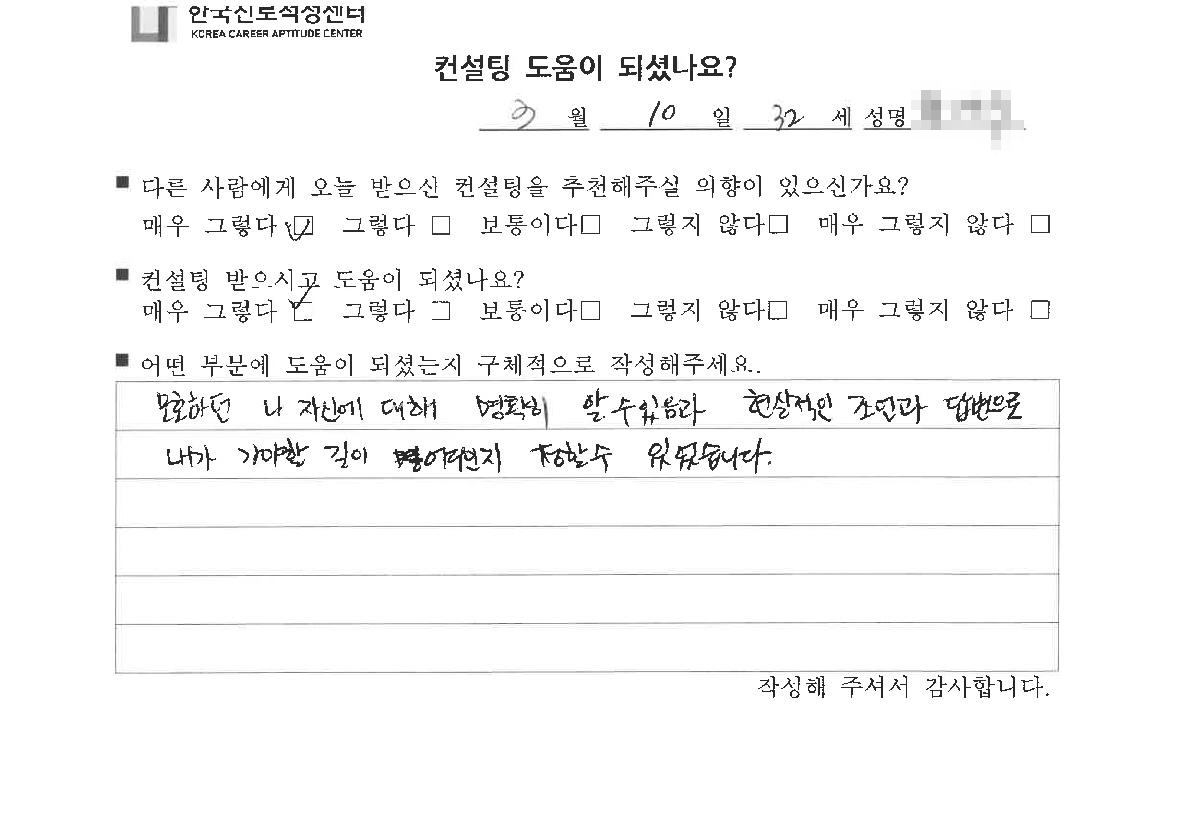 한국진로적성센터
KOREA CAREER APTITUDE CENTER
컨설팅 도움이 되셨나요?
월 10 일 32 세 성명
■ 다른 사람에게 오늘 받으신 컨설팅을 추천해주실 의향이 있으신가요?
매우 그렇다 ☑ 그렇다 □ 보통이다□ 그렇지 않다□ 매우 그렇지 않다 □
■ 컨설팅 받으시고 도움이 되셨나요?
매우 그렇다 ☑ 그렇다 □ 보통이다□ 그렇지 않다□ 매우 그렇지 않다 □
■ 어떤 부분에 도움이 되셨는지 구체적으로 작성해주세요..
모호하던 나 자신에 대해 명확히 알 수 있음과 현실적인 조언과 답변으로
내가 가야할 길이 어디인지 정할수 있었습니다.
작성해 주셔서 감사합니다.